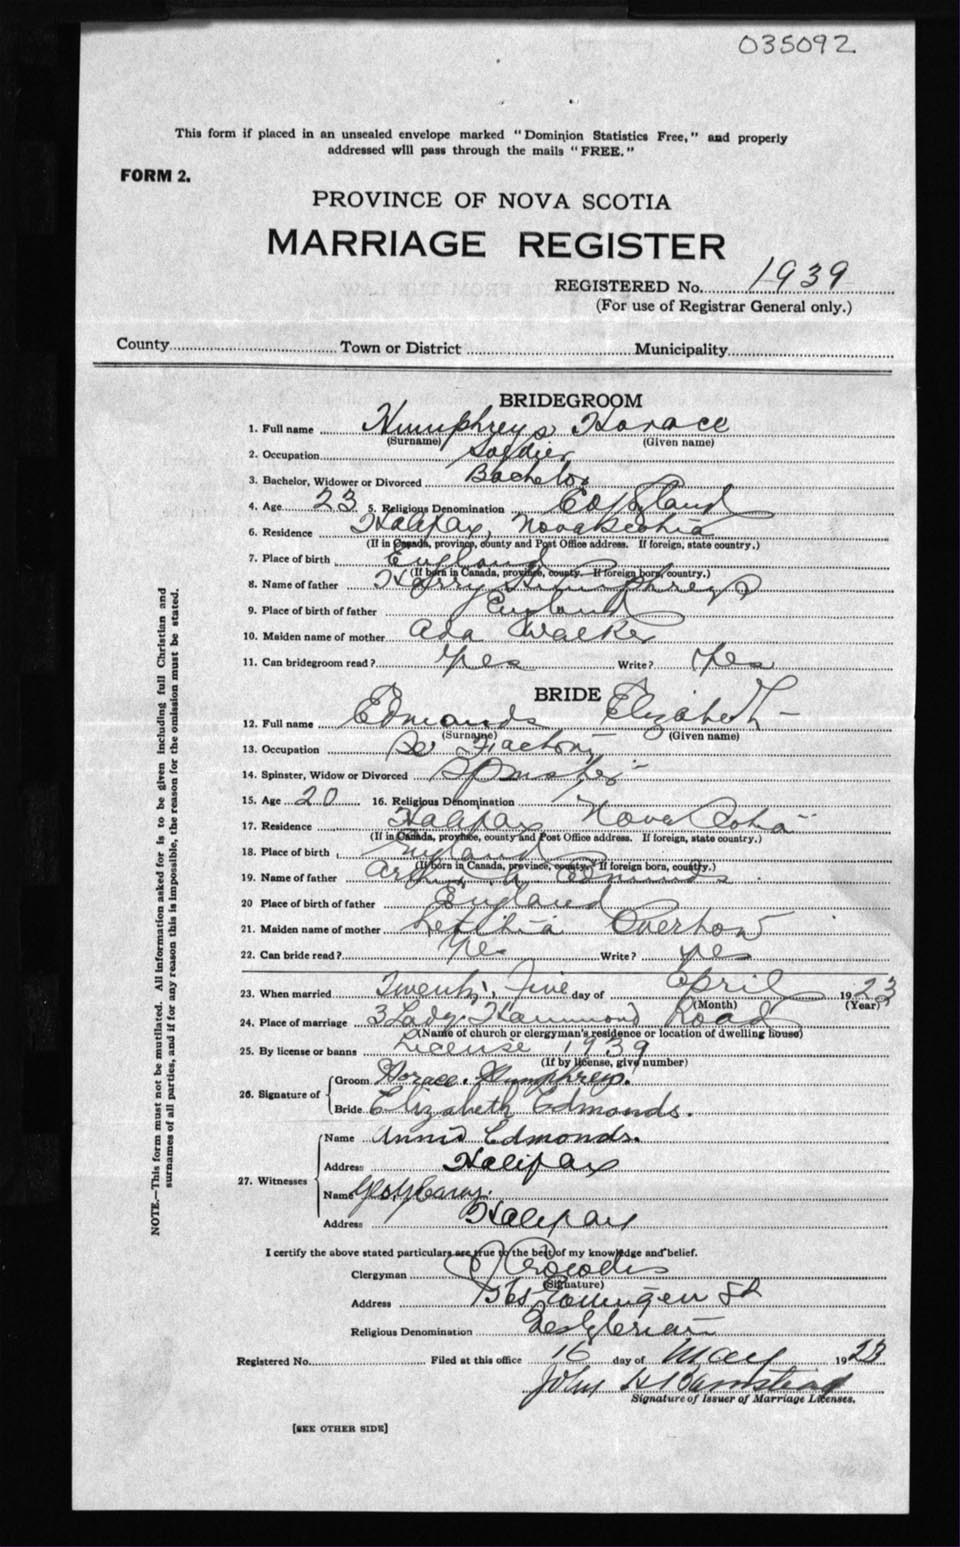 035092
This form if placed in an unsealed envelope marked "Dominion Statistics Free," and properly
addressed will pass through the mails "FREE."
FORM 2.
PROVINCE OF NOVA SCOTIA
MARRIAGE REGISTER
REGISTERED No. 1939
(For use of Registrar General only.)
County Town or District Municipality
BRIDEGROOM
1. Full name Humphreys Horace
(Surname) (Given name)
2. Occupation Soldier
3. Bachelor, Widower or Divorced Bachelor
4. Age 23 5. Religious Denomination C of England
6. Residence Halifax, Nova Scotia
(If in Canada, province, county and Post Office address. If foreign, state country.)
7. Place of birth England
(If born in Canada, province, county. If foreign born, country.)
8. Name of father Harry Humphreys
9. Place of birth of father England
10. Maiden name of mother Ada Walker
11. Can bridegroom read? Yes Write? Yes
BRIDE
12. Full name Edmonds Elizabeth
(Surname) (Given name)
13. Occupation Factory
14. Spinster, Widow or Divorced Spinster
15. Age 20 16. Religious Denomination
17. Residence Halifax Nova Scotia
(If in Canada, province, county and Post Office address. If foreign, state country.)
18. Place of birth England
(If born in Canada, province, county. If foreign born, country.)
19. Name of father Edmonds
20 Place of birth of father England
21. Maiden name of mother
22. Can bride read? Yes Write? Yes
23. When married Twenty Five day of April 1923
(Month) (Year)
24. Place of marriage 3 Lady Hammond Road
(Name of church or clergyman's residence or location of dwelling house)
25. By license or banns License 1939
(If by license, give number)
26. Signature of
Groom Horace Humphreys.
Bride Elizabeth Edmonds.
27. Witnesses
Name Annie Edmonds.
Address Halifax
Name
Address Halifax
I certify the above stated particulars are true to the best of my knowledge and belief.
Clergyman
(Signature)
Address St
Religious Denomination
Registered No. Filed at this office 16 day of May 1923
John
Signature of Issuer of Marriage Licenses.
[SEE OTHER SIDE]
NOTE.—This form must not be mutilated. All information asked for is to be given including full Christian and
surnames of all parties, and if for any reason this is impossible, the reason for the omission must be stated.